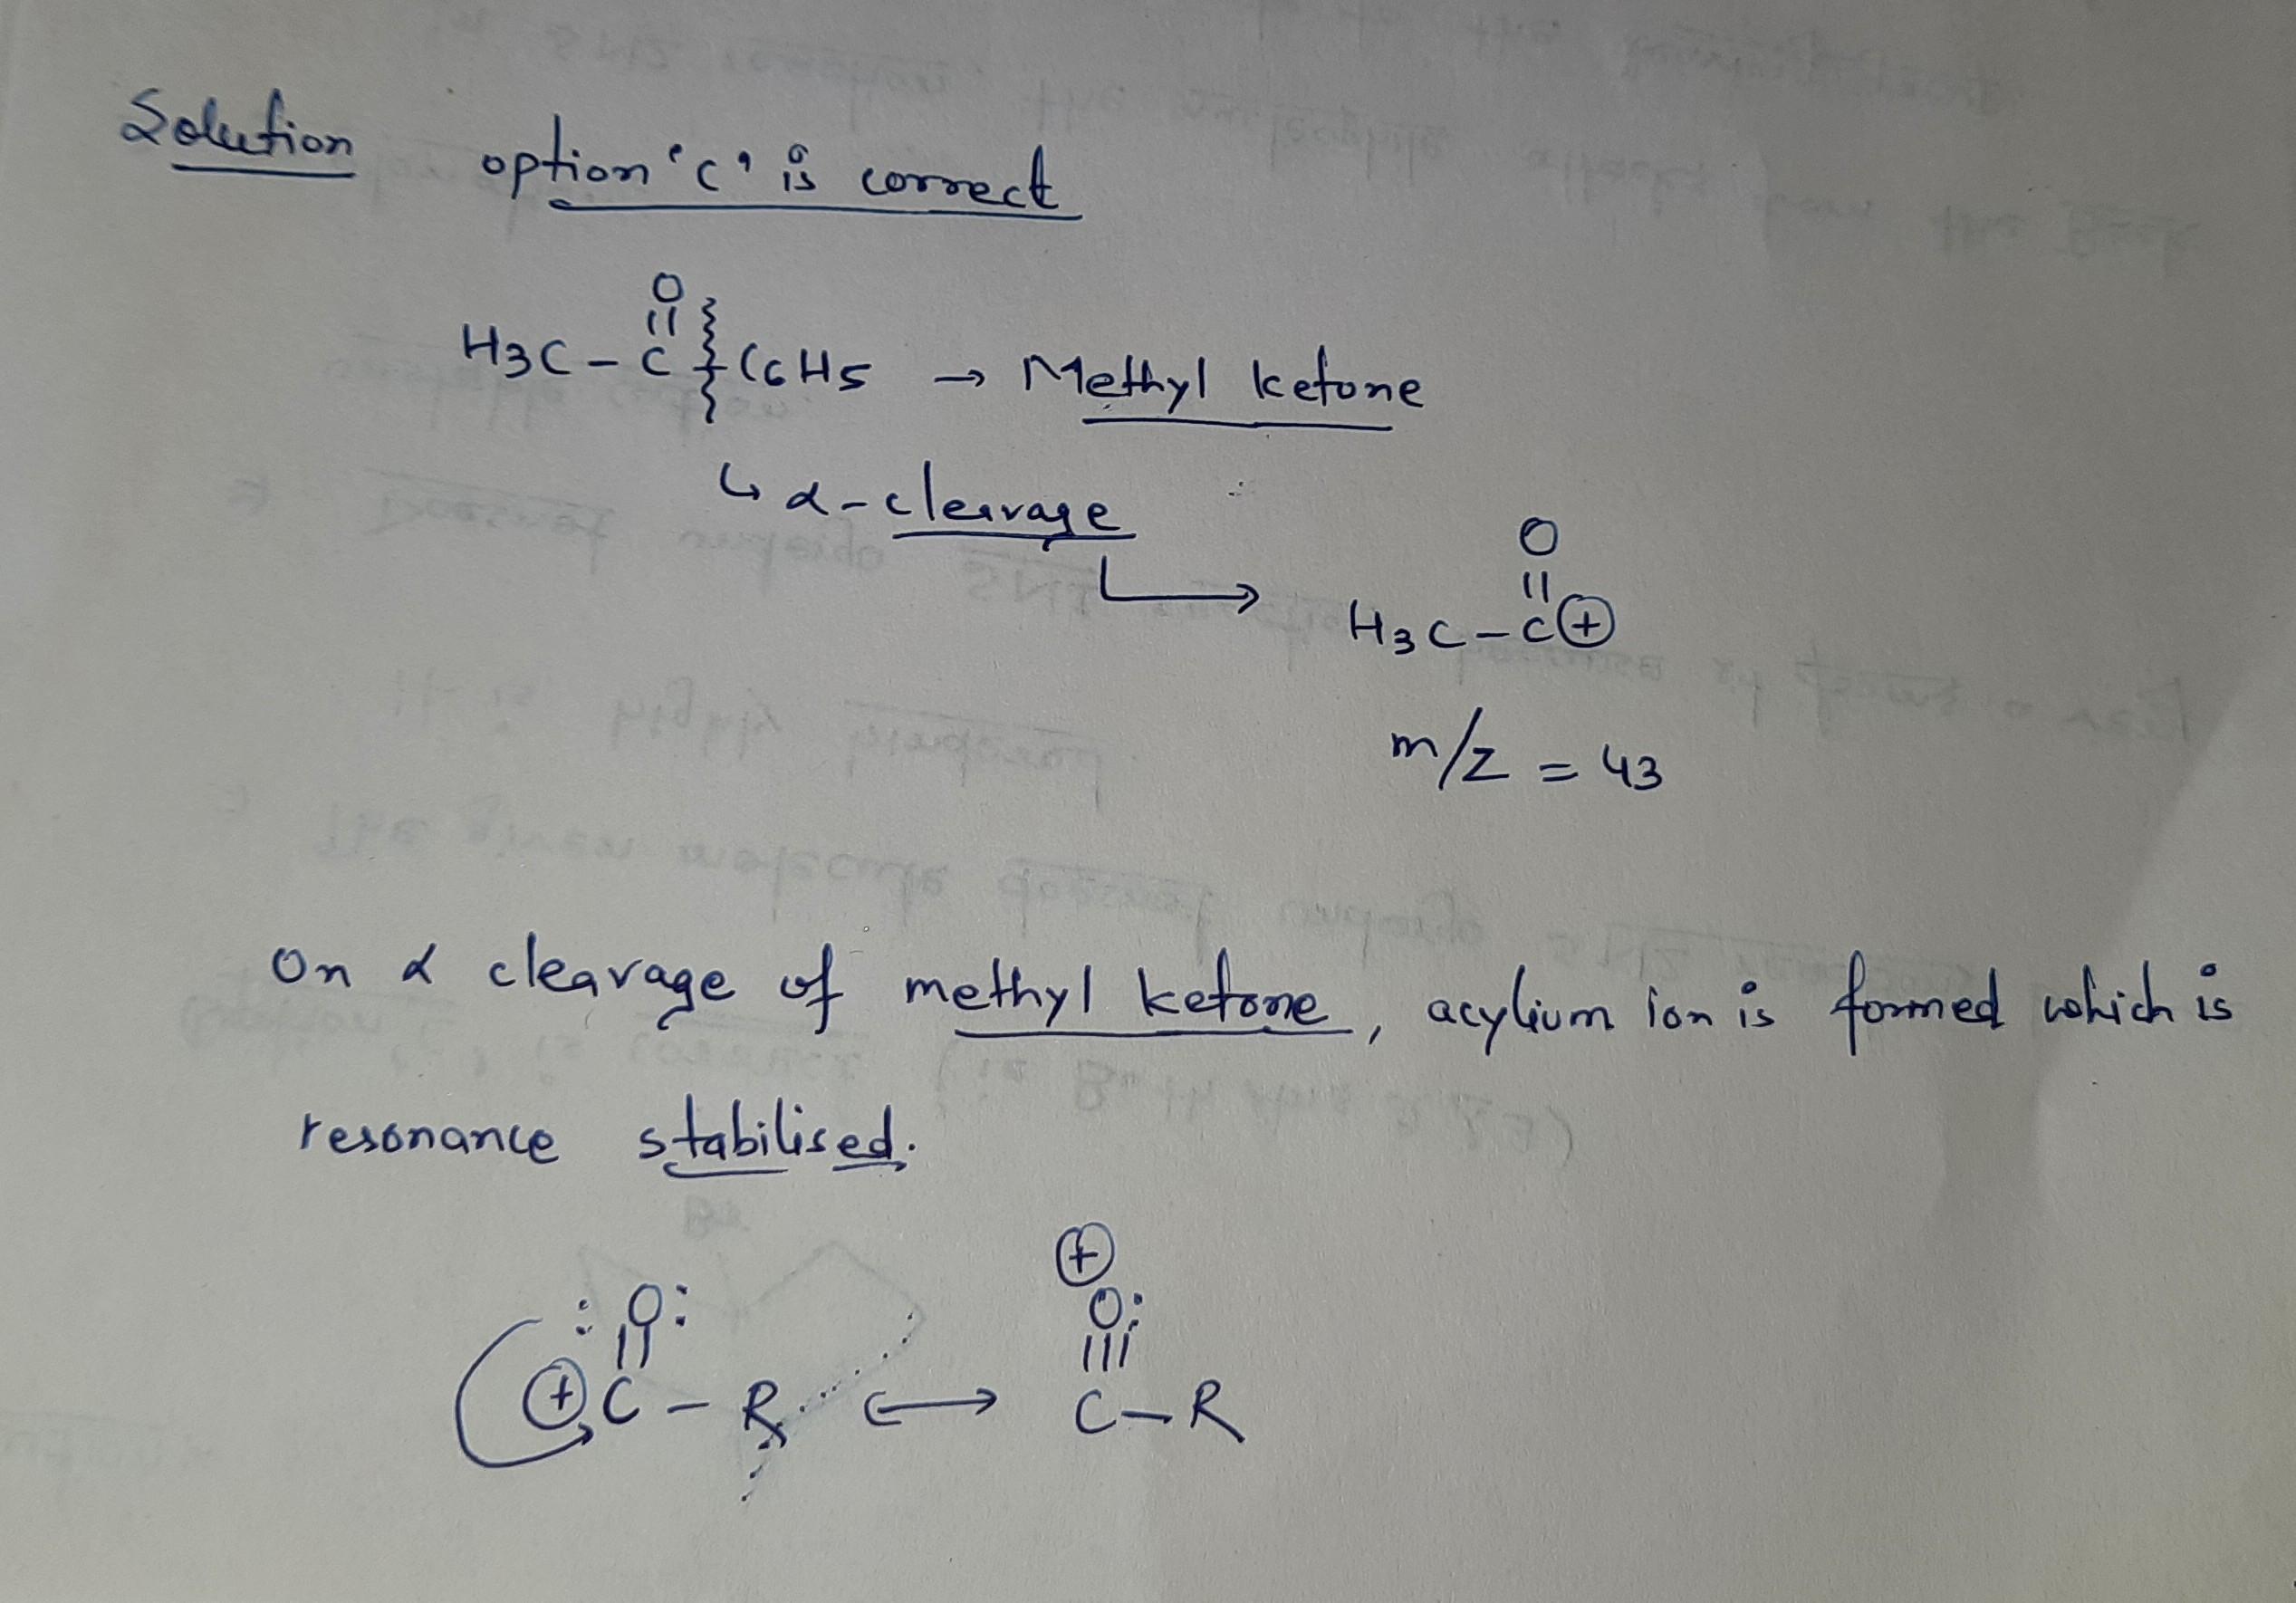 Solution option 'c' is correct
O
H3C - C C6H5 → Methyl ketone
↳ α-clearage
O
H3C - C +
m/z = 43
On α cleavage of methyl ketone, acylium ion is formed which is
resonance stabilised.
+
: O: O:
+ C - R ↔ C - R